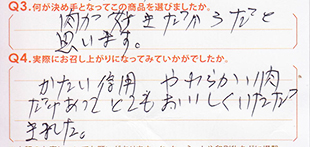 Q3.何が決め手となってこの商品を選びましたか。
肉が好きだからだと
思います。
Q4.実際にお召し上がりになってみていかがでしたか。
かたい信用 やわらかい肉
だけあってとてもおいしくいただ
きました。